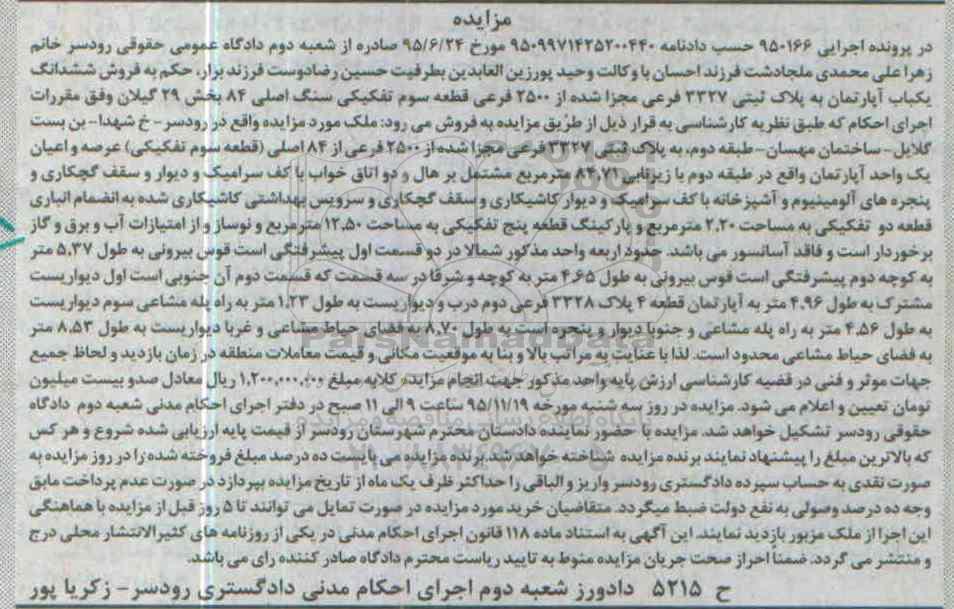 مزایده
در پرونده اجرایی ۹۵۰۱۶۶ حسب دادنامه ۹۵۰۹۹۷۱۴۲۵۲۰۰۴۴۰ مورخ ۹۵/۶/۲۴ صادره از شعبه دوم دادگاه عمومی حقوقی رودسر خانم
زهرا علی محمدی ملجادشت فرزند احسان با وکالت وحید پورزین العابدین بطرفیت حسین رضادوست فرزند برار، حکم به فروش ششدانگ
یکباب آپارتمان به پلاک ثبتی ۳۳۲۷ فرعی مجزا شده از ۲۵۰۰ فرعی قطعه سوم تفکیکی سنگ اصلی ۸۴ بخش ۲۹ گیلان وفق مقررات
اجرای احکام که طبق نظریه کارشناسی به قرار ذیل از طریق مزایده به فروش می رود: ملک مورد مزایده واقع در رودسر- خ شهدا- بن بست
گلایل- ساختمان مهسان- طبقه دوم، به پلاک ثبتی ۳۳۲۷ فرعی مجزا شده از ۲۵۰۰ فرعی از ۸۴ اصلی (قطعه سوم تفکیکی) عرصه و اعیان
یک واحد آپارتمان واقع در طبقه دوم با زیربنایی ۸۴,۷۱ مترمربع مشتمل بر هال و دو اتاق خواب با کف سرامیک و دیوار و سقف گچکاری و
پنجره های آلومینیوم و آشپزخانه با کف سرامیک و دیوار کاشیکاری و سقف گچکاری و سرویس بهداشتی کاشیکاری شده به انضمام انباری
قطعه دو تفکیکی به مساحت ۲,۲۰ مترمربع و پارکینگ قطعه پنج تفکیکی به مساحت ۱۲,۵۰ مترمربع و نوساز و از امتیازات آب و برق و گاز
برخوردار است و فاقد آسانسور می باشد. حدود اربعه واحد مذکور شمالا در دو قسمت اول پیشرفتگی است قوس بیرونی به طول ۵,۳۷ متر
به کوچه دوم پیشرفتگی است قوس بیرونی به طول ۴,۶۵ متر به کوچه و شرقا در سه قسمت که قسمت دوم آن جنوبی است اول دیواریست
مشترک به طول ۴,۹۶ متر به آپارتمان قطعه ۴ پلاک ۳۳۲۸ فرعی دوم درب و دیواریست به طول ۱,۲۳ متر به راه پله مشاعی سوم دیواریست
به طول ۴,۵۶ متر به راه پله مشاعی و جنوبا دیوار و پنجره است به طول ۸,۷۰ به فضای حیاط مشاعی و غربا دیواریست به طول ۸,۵۳ متر
به فضای حیاط مشاعی محدود است. لذا با عنایت به مراتب بالا و بنا به موقعیت مکانی و قیمت معاملات منطقه در زمان بازدید و لحاظ جمیع
جهات موثر و فنی در قضیه کارشناسی ارزش پایه واحد مذکور جهت انجام مزایده کلابه مبلغ ۱,۲۰۰,۰۰۰,۰۰۰ ریال معادل صدو بیست میلیون
تومان تعیین و اعلام می شود. مزایده در روز سه شنبه مورخه ۹۵/۱۱/۱۹ ساعت ۹ الی ۱۱ صبح در دفتر اجرای احکام مدنی شعبه دوم دادگاه
حقوقی رودسر تشکیل خواهد شد. مزایده با حضور نماینده دادستان محترم شهرستان رودسر از قیمت پایه ارزیابی شده شروع و هر کس
که بالاترین مبلغ را پیشنهاد نمایند برنده مزایده شناخته خواهد شد. برنده مزایده می بایست ده درصد مبلغ فروخته شده را در روز مزایده به
صورت نقدی به حساب سپرده دادگستری رودسر واریز و الباقی را حداکثر ظرف یک ماه از تاریخ مزایده بپردازد در صورت عدم پرداخت مابق
وجه ده درصد وصولی به نفع دولت ضبط میگردد. متقاضیان خرید مورد مزایده در صورت تمایل می توانند تا ۵ روز قبل از مزایده با هماهنگی
این اجرا از ملک مزبور بازدید نمایند. این آگهی به استناد ماده ۱۱۸ قانون اجرای احکام مدنی در یکی از روزنامه های کثیرالانتشار محلی درج
و منتشر می گردد. ضمناً احراز صحت جریان مزایده منوط به تایید ریاست محترم دادگاه صادر کننده رای می باشد.
ح ۵۲۱۵ دادورز شعبه دوم اجرای احکام مدنی دادگستری رودسر- زکریا پور
ParsNamadData